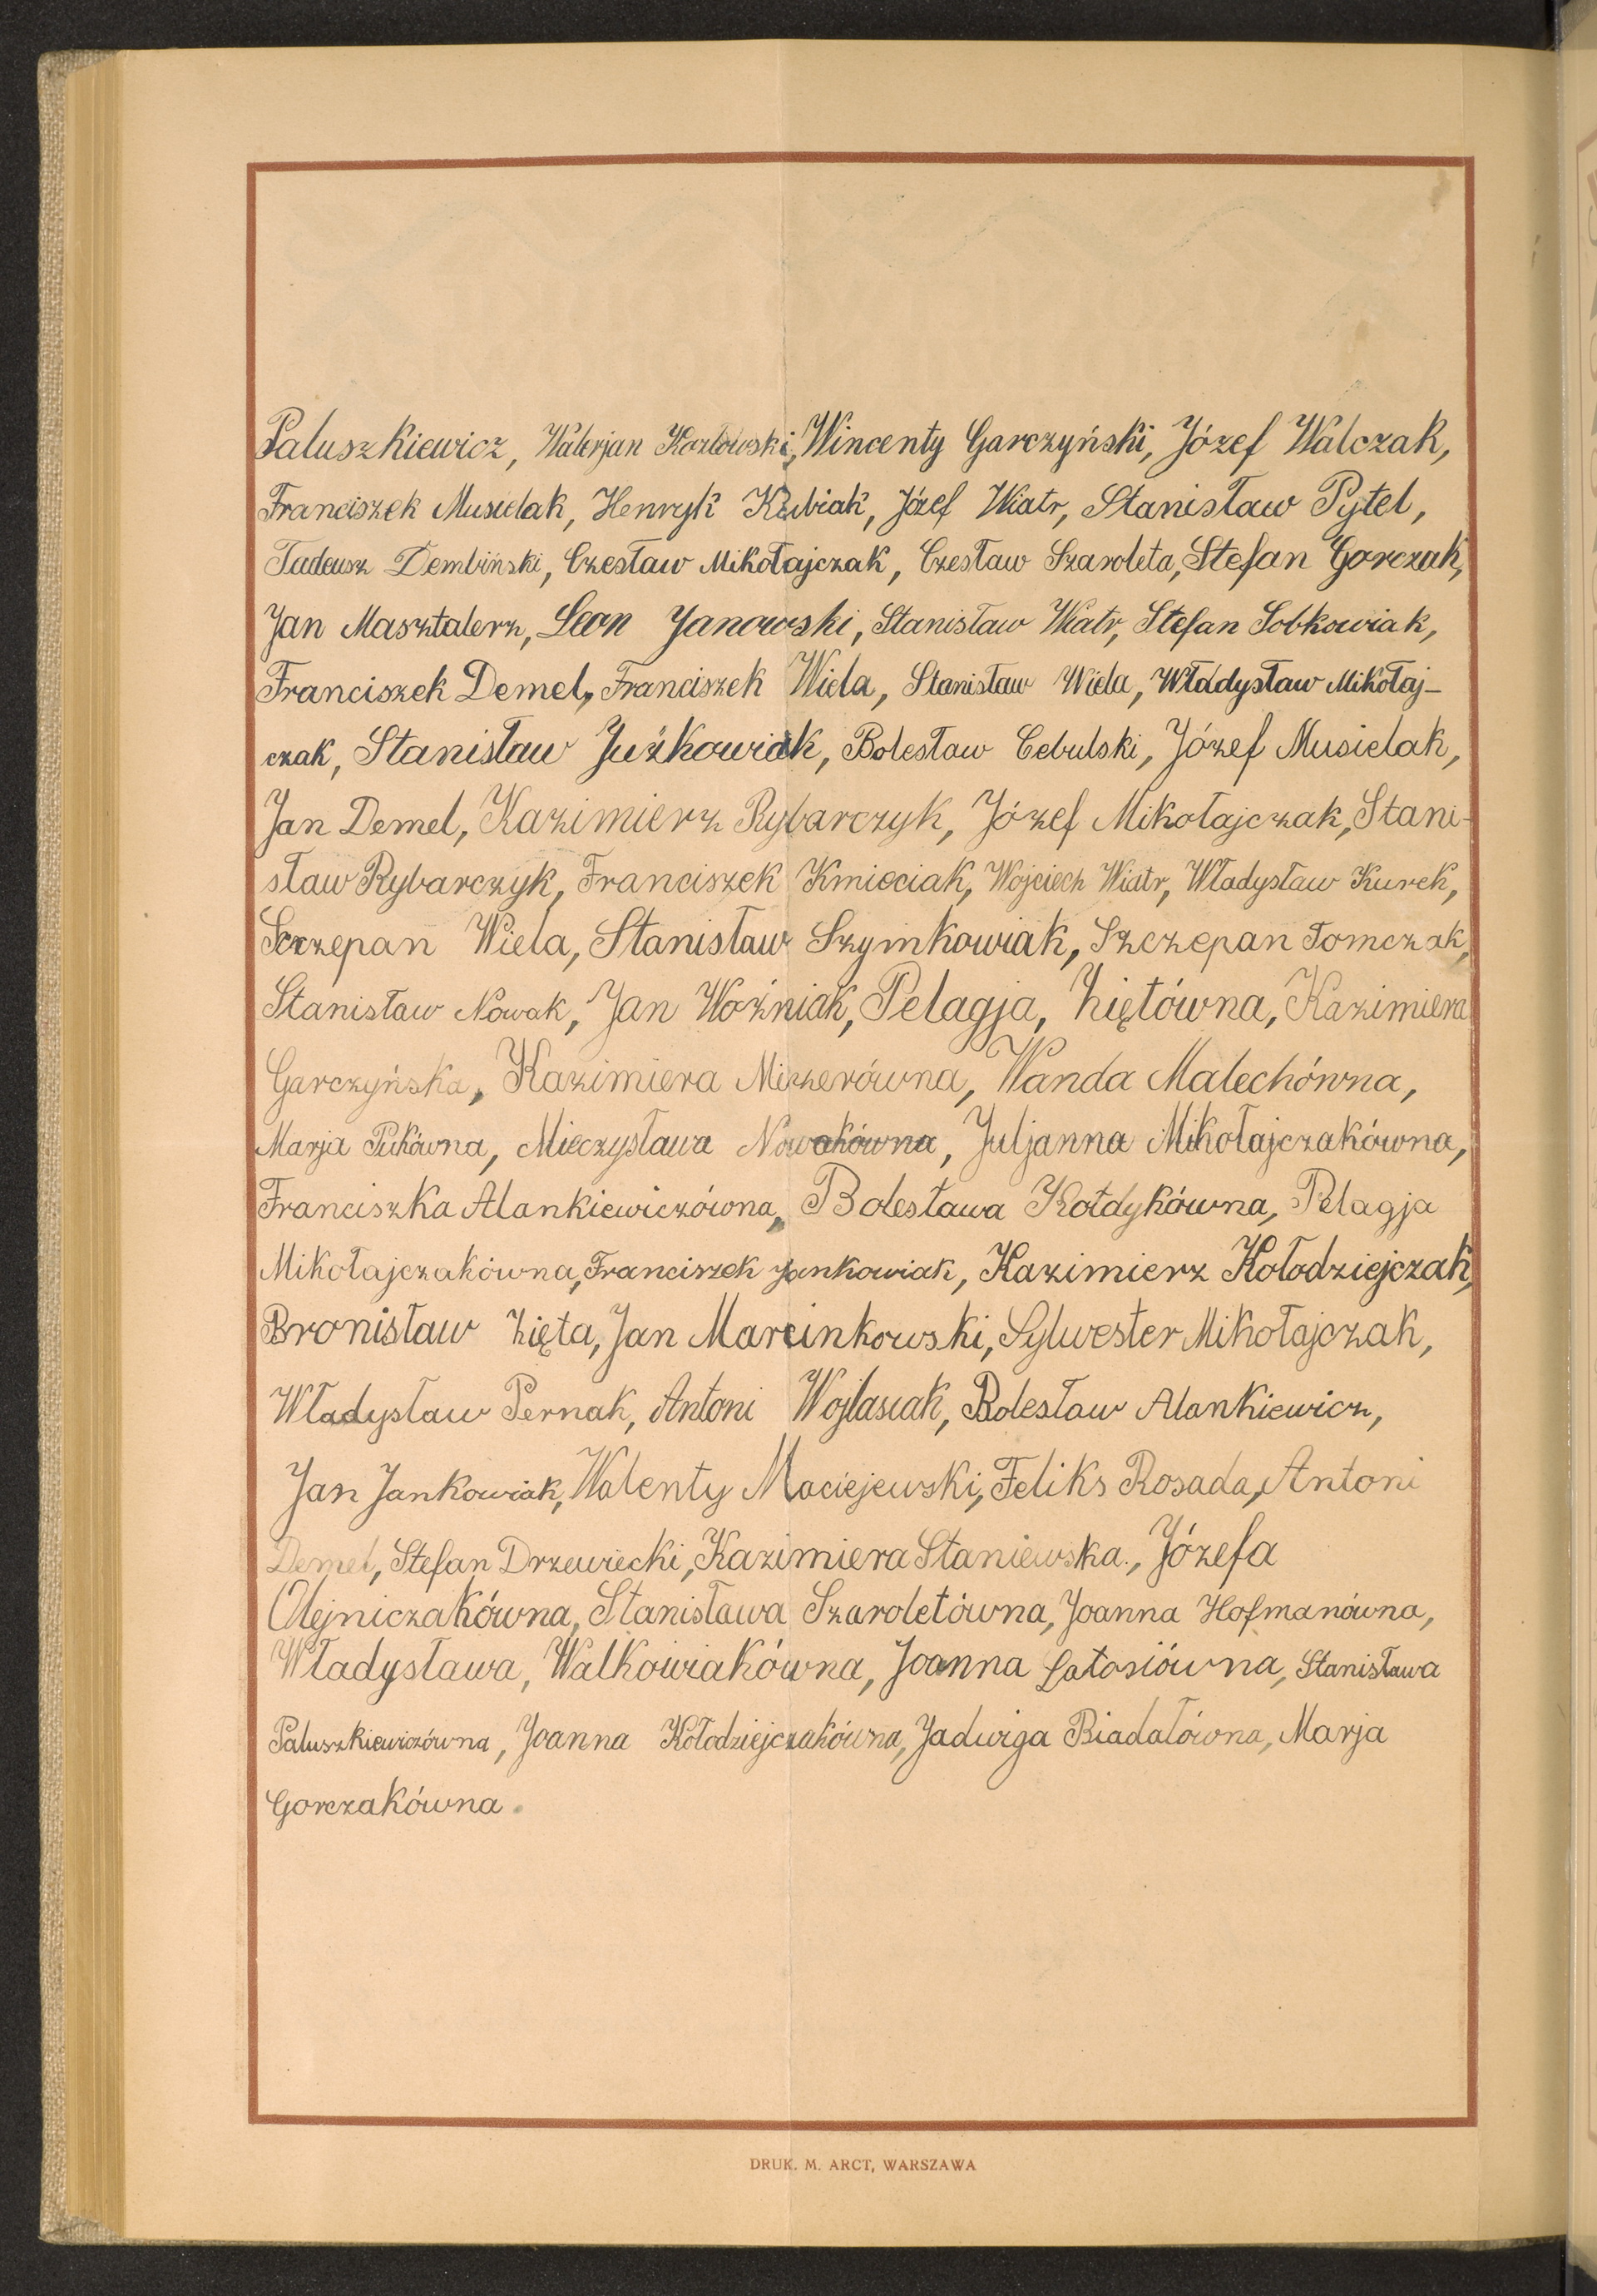 Paluszkiewicz, Walerjan Kozłowski, Wincenty Garczyński, Józef Walczak,
Franciszek Musielak, Henryk Kubiak, Józef Wiatr, Stanisław Pytel,
Tadeusz Dembiński, Czesław Mikołajczak, Czesław Szaroleta, Stefan Gorczak,
Jan Masztalerz, Leon Janowski, Stanisław Wiatr, Stefan Sobkowiak,
Franciszek Demel, Franciszek Wiela, Stanisław Wiela, Władysław Mikołaj-
czak, Stanisław Juźkowiak, Bolesław Cebulski, Józef Musielak,
Jan Demel, Kazimierz Rybarczyk, Józef Mikołajczak, Stani-
sław Rybarczyk, Franciszek Kmieciak, Wojciech Wiatr, Władysław Kurek,
Szczepan Wiela, Stanisław Szymkowiak, Szczepan Tomczak,
Stanisław Nowak, Jan Woźniak, Pelagja, Ziętówna, Kazimiera
Garczyńska, Kazimiera Mizerówna, Wanda Malechówna,
Marja Pukówna, Mieczysława Nowakówna, Juljanna Mikołajczakówna,
Franciszka Alankiewiczówna, Bolesława Kołdykówna, Pelagja
Mikołajczakówna, Franciszek Jankowiak, Kazimierz Kołodziejczak,
Bronisław Zięta, Jan Marcinkowski, Sylwester Mikołajczak,
Władysław Pernak, Antoni Wojtasiak, Bolesław Alankiewicz,
Jan Jankowiak, Walenty Maciejewski, Feliks Rosada, Antoni
Demel, Stefan Drzewiecki, Kazimiera Staniewska., Józefa
Olejniczakówna, Stanisława Szaroletówna, Joanna Hofmanówna,
Władysława, Walkowiakówna, Joanna Latosiówna, Stanisława
Paluszkiewiczówna, Joanna Kołodziejczakówna, Jadwiga Biadałówna, Marja
Gorczakówna.
DRUK. M. ARCT, WARSZAWA